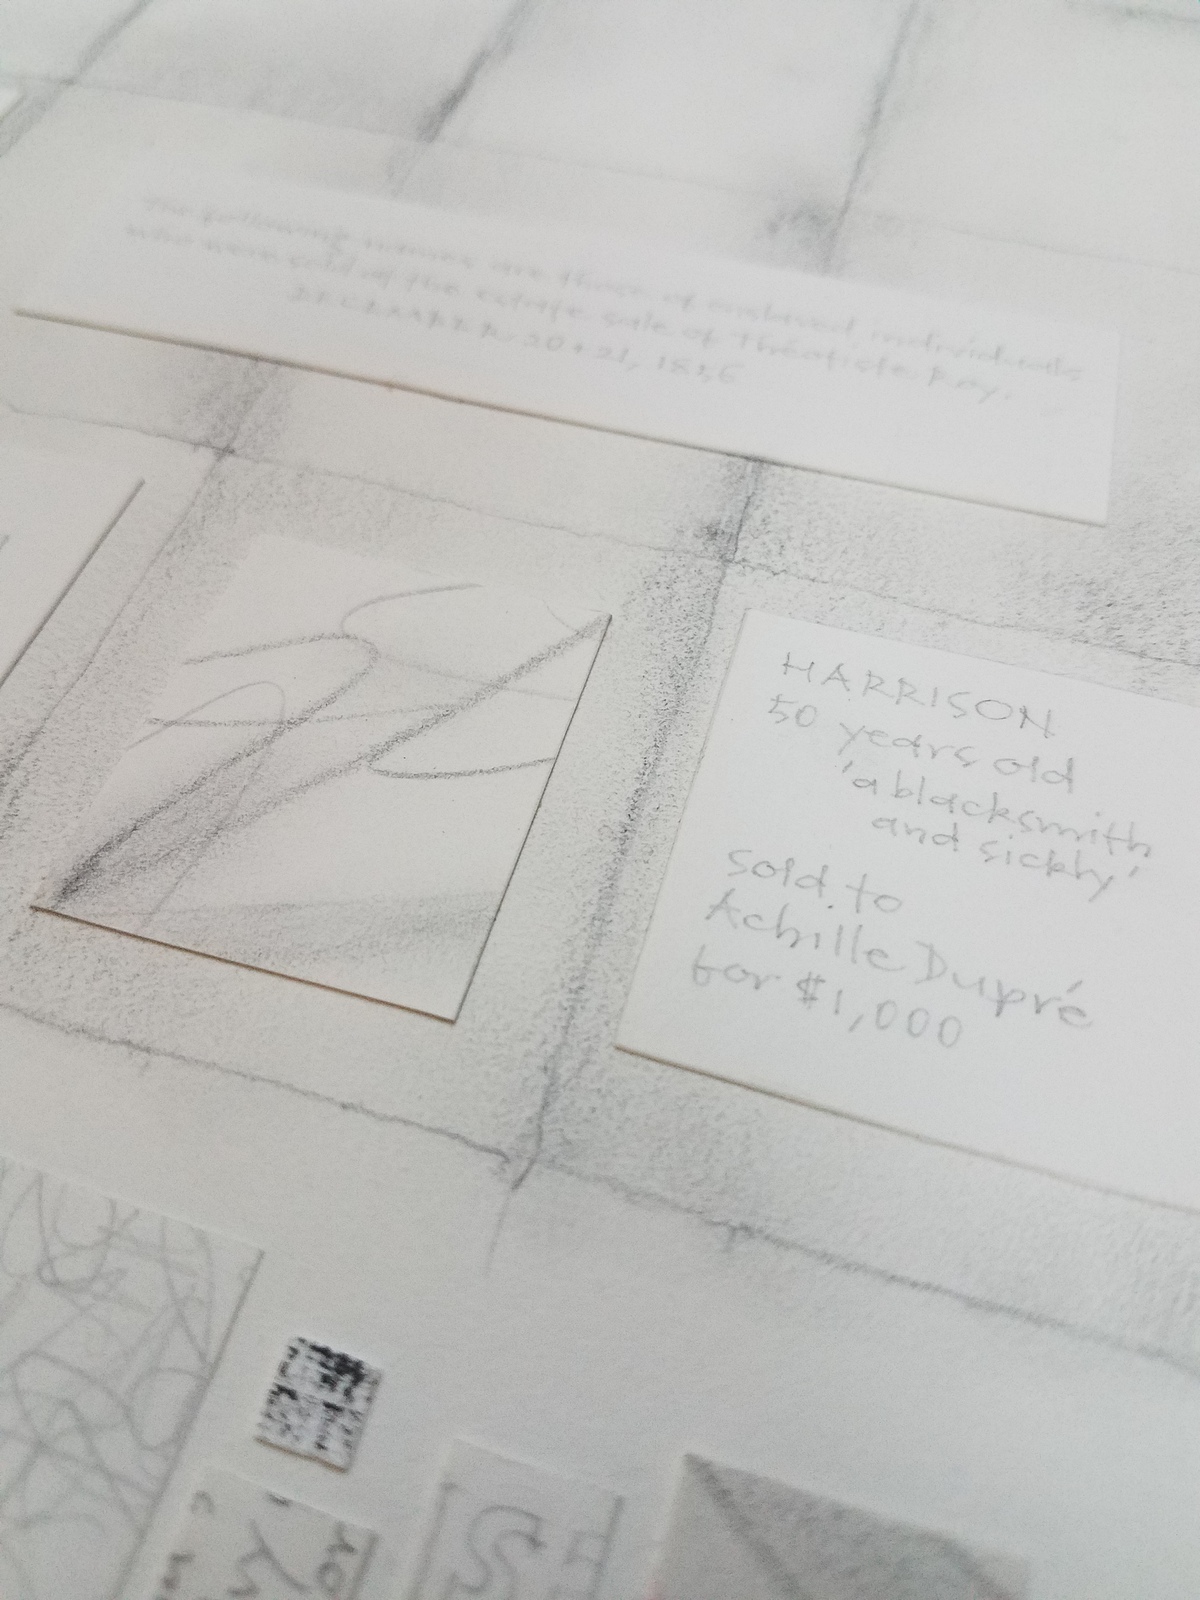 The following names are those of enslaved individuals
who were sold at the estate sale of Théotiste Roy,
DECEMBER, 20 + 21, 1856
HARRISON
50 years old
'a blacksmith
and sickly'
sold to
Achille Dupré
for $1,000